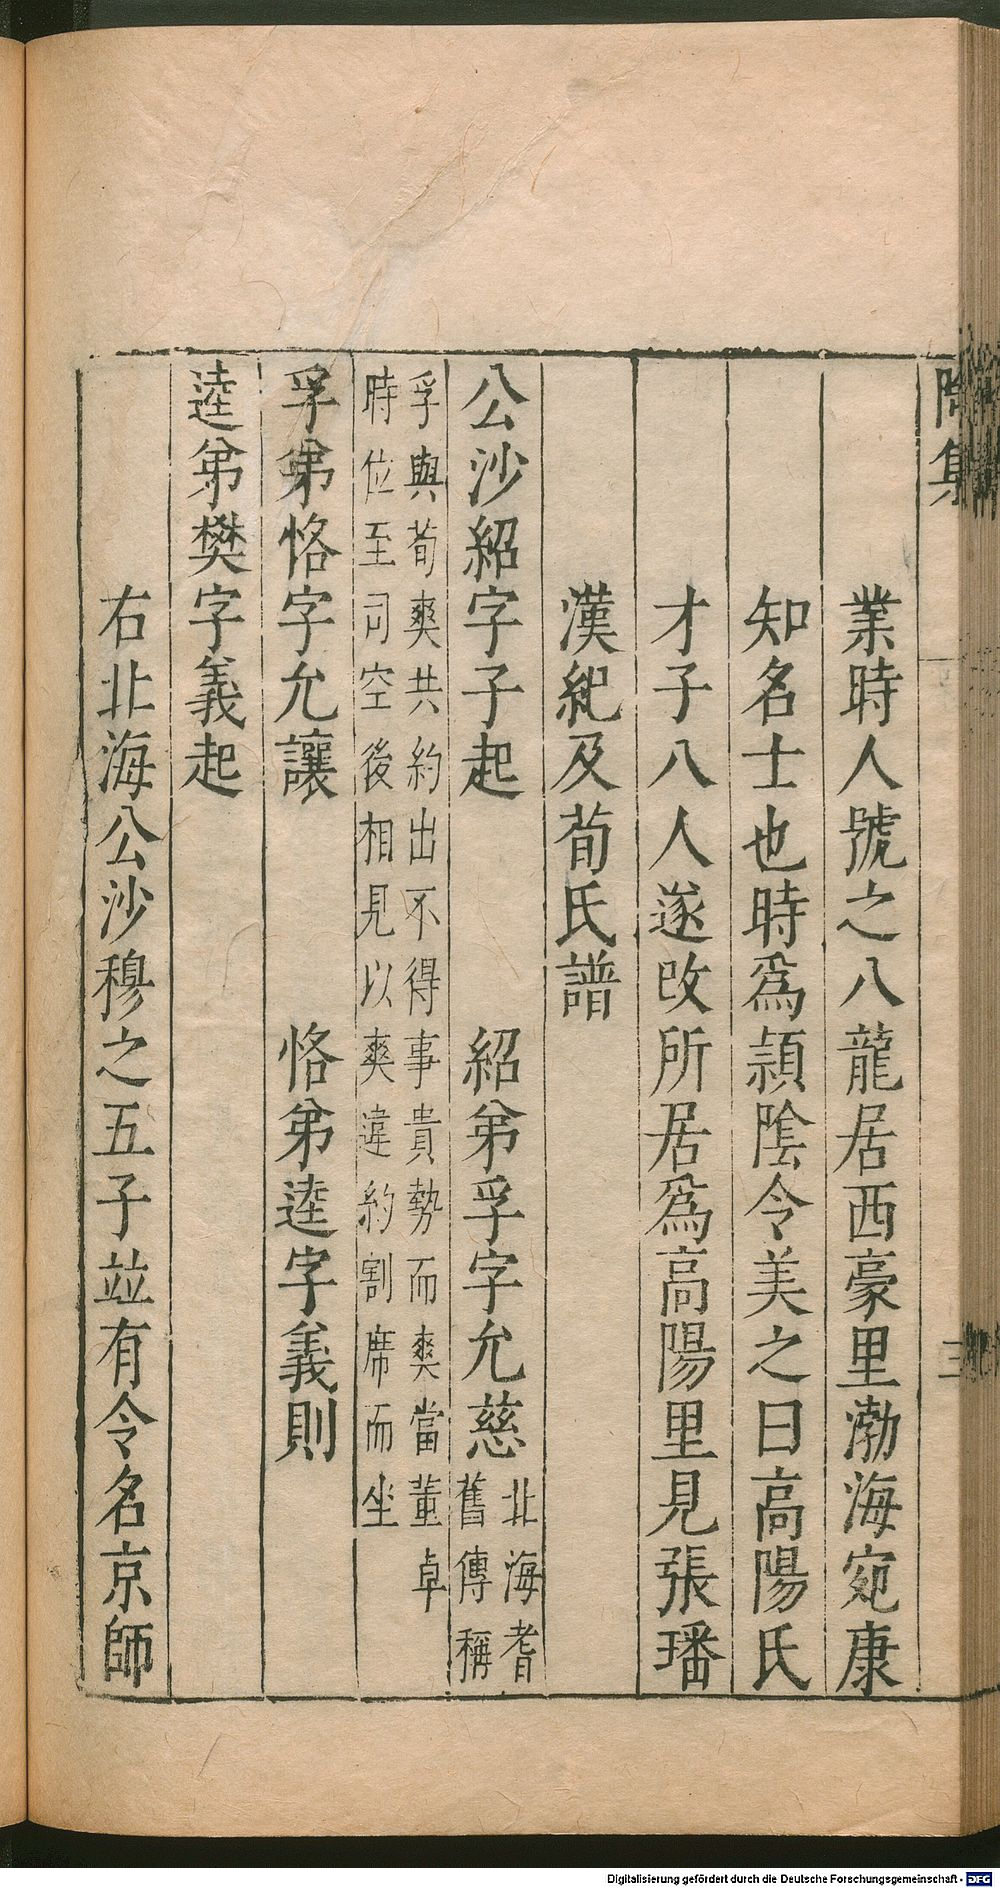 集
三
業時人號之八龍居西豪里渤海宛康
知名士也時爲潁陰令美之曰高陽氏
才子八人遂改所居爲高陽里見張璠
漢紀及荀氏譜
公沙紹字子起 紹弟孚字允慈 北海耆
舊傳稱
孚與荀爽共約出不得事貴勢而爽當董卓
時位至司空後相見以爽違約割席而坐
孚弟恪字允讓 恪弟逵字義則
逵弟樊字義起
右北海公沙穆之五子並有令名京師
Digitalisierung gefördert durch die Deutsche Forschungsgemeinschaft - DFG